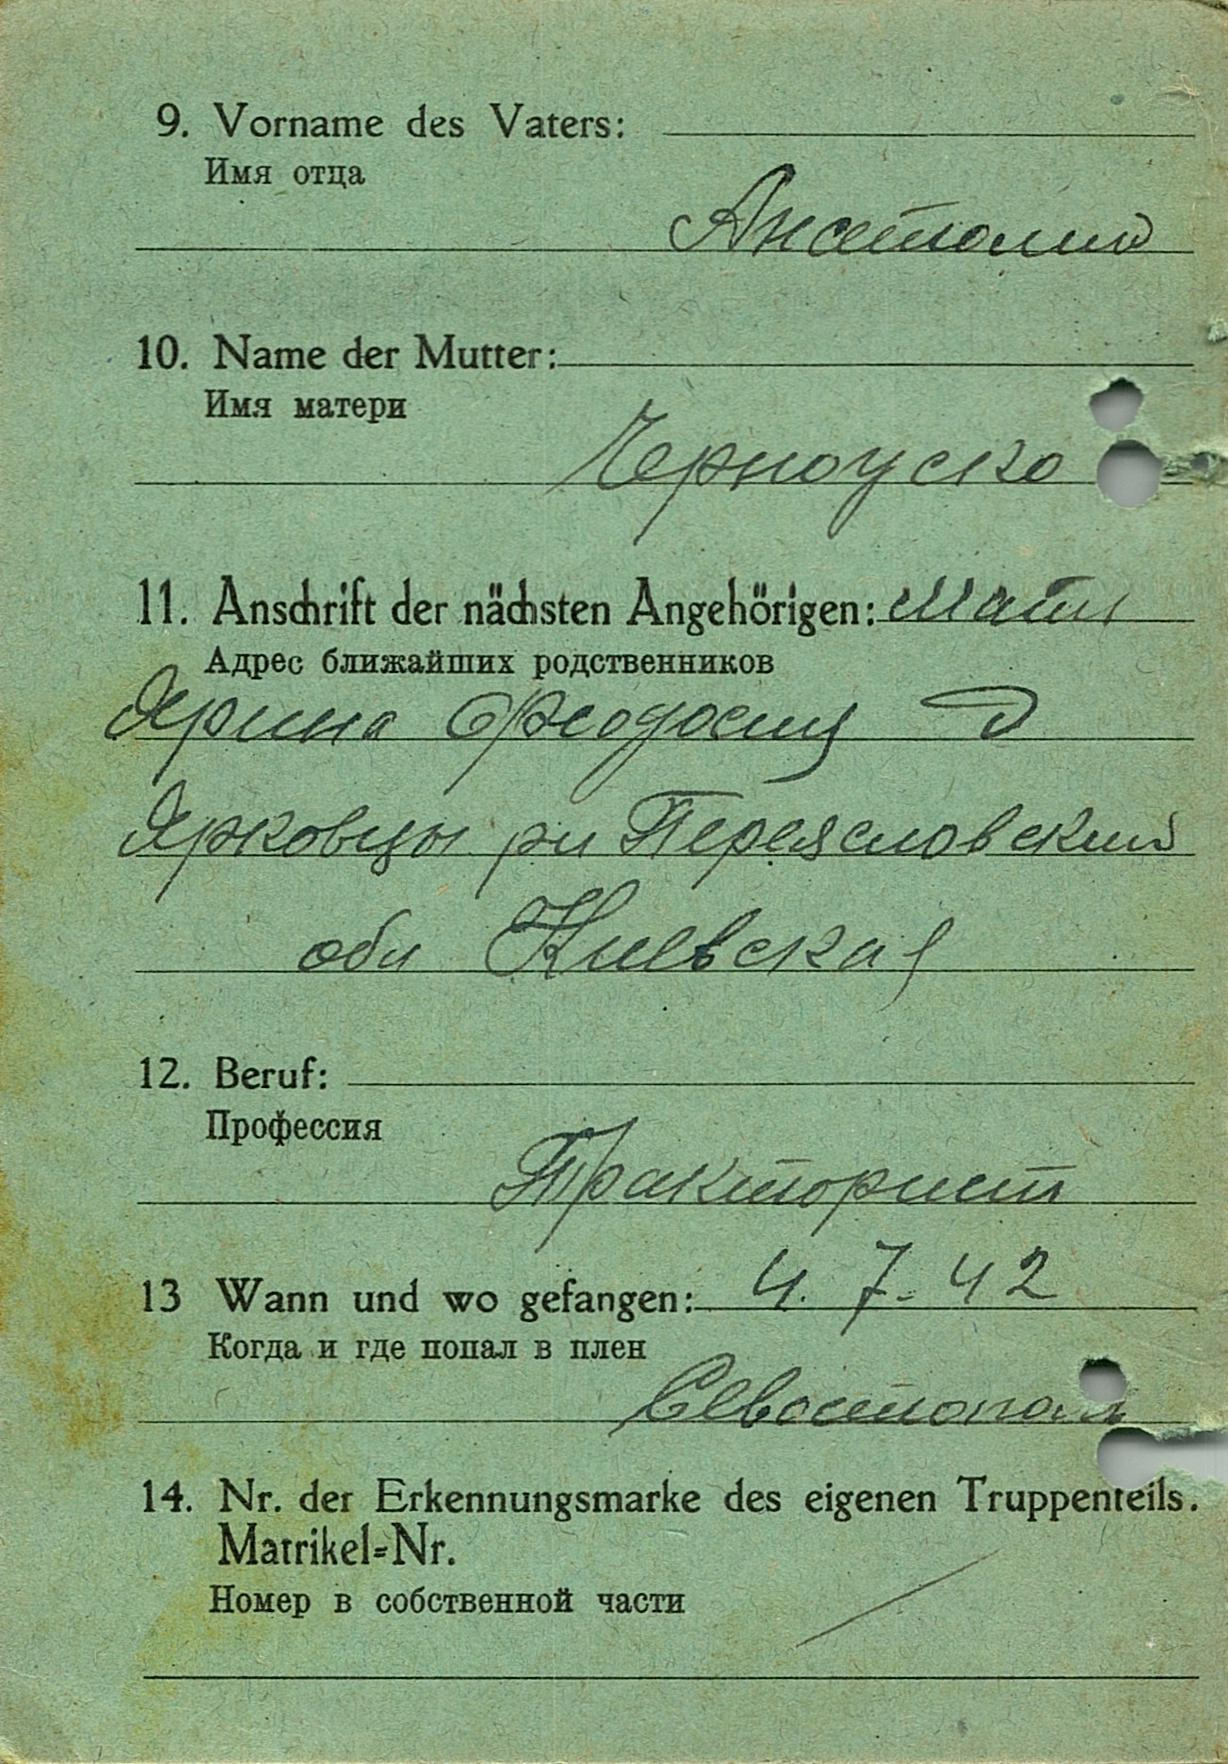 9. Vorname des Vaters:
Имя отца
Анатолий
10. Name der Mutter:
Имя матери
Черноуско
11. Anschrift der nächsten Angehörigen: мать
Адрес ближайших родственников
Ярина Феодосия д
Ярковцы рн Переясловский
обл Киевская
12. Beruf:
Профессия
Тракторист
13 Wann und wo gefangen: 4. 7. 42
Когда и где попал в плен
Севостопол
14. Nr. der Erkennungsmarke des eigenen Truppenteils.
Matrikel=Nr.
Номер в собственной части